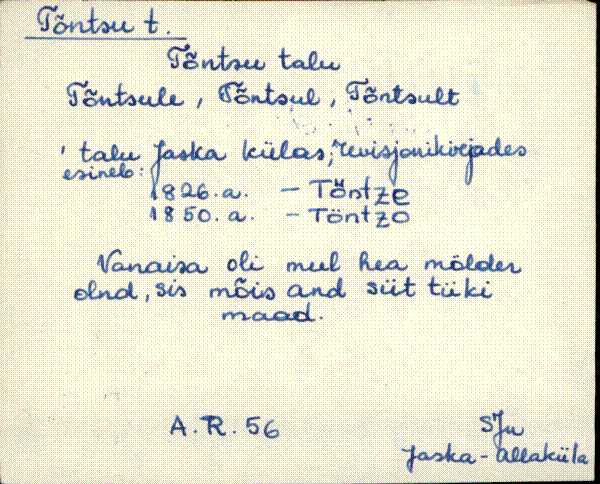 Tõntsu t.
Tõntsu talu
Tõntsule, Tõntsul, Tõntsult
' talu Jaska külas, revisjonikirjades
esineb:
1826. a. - Töntze
1850. a. - Töntzo
Vanaisa oli meil hea mölder
olnd, sis mõis and siit tüki
maad.
A.R. 56
SJn
Jaska-Allaküla